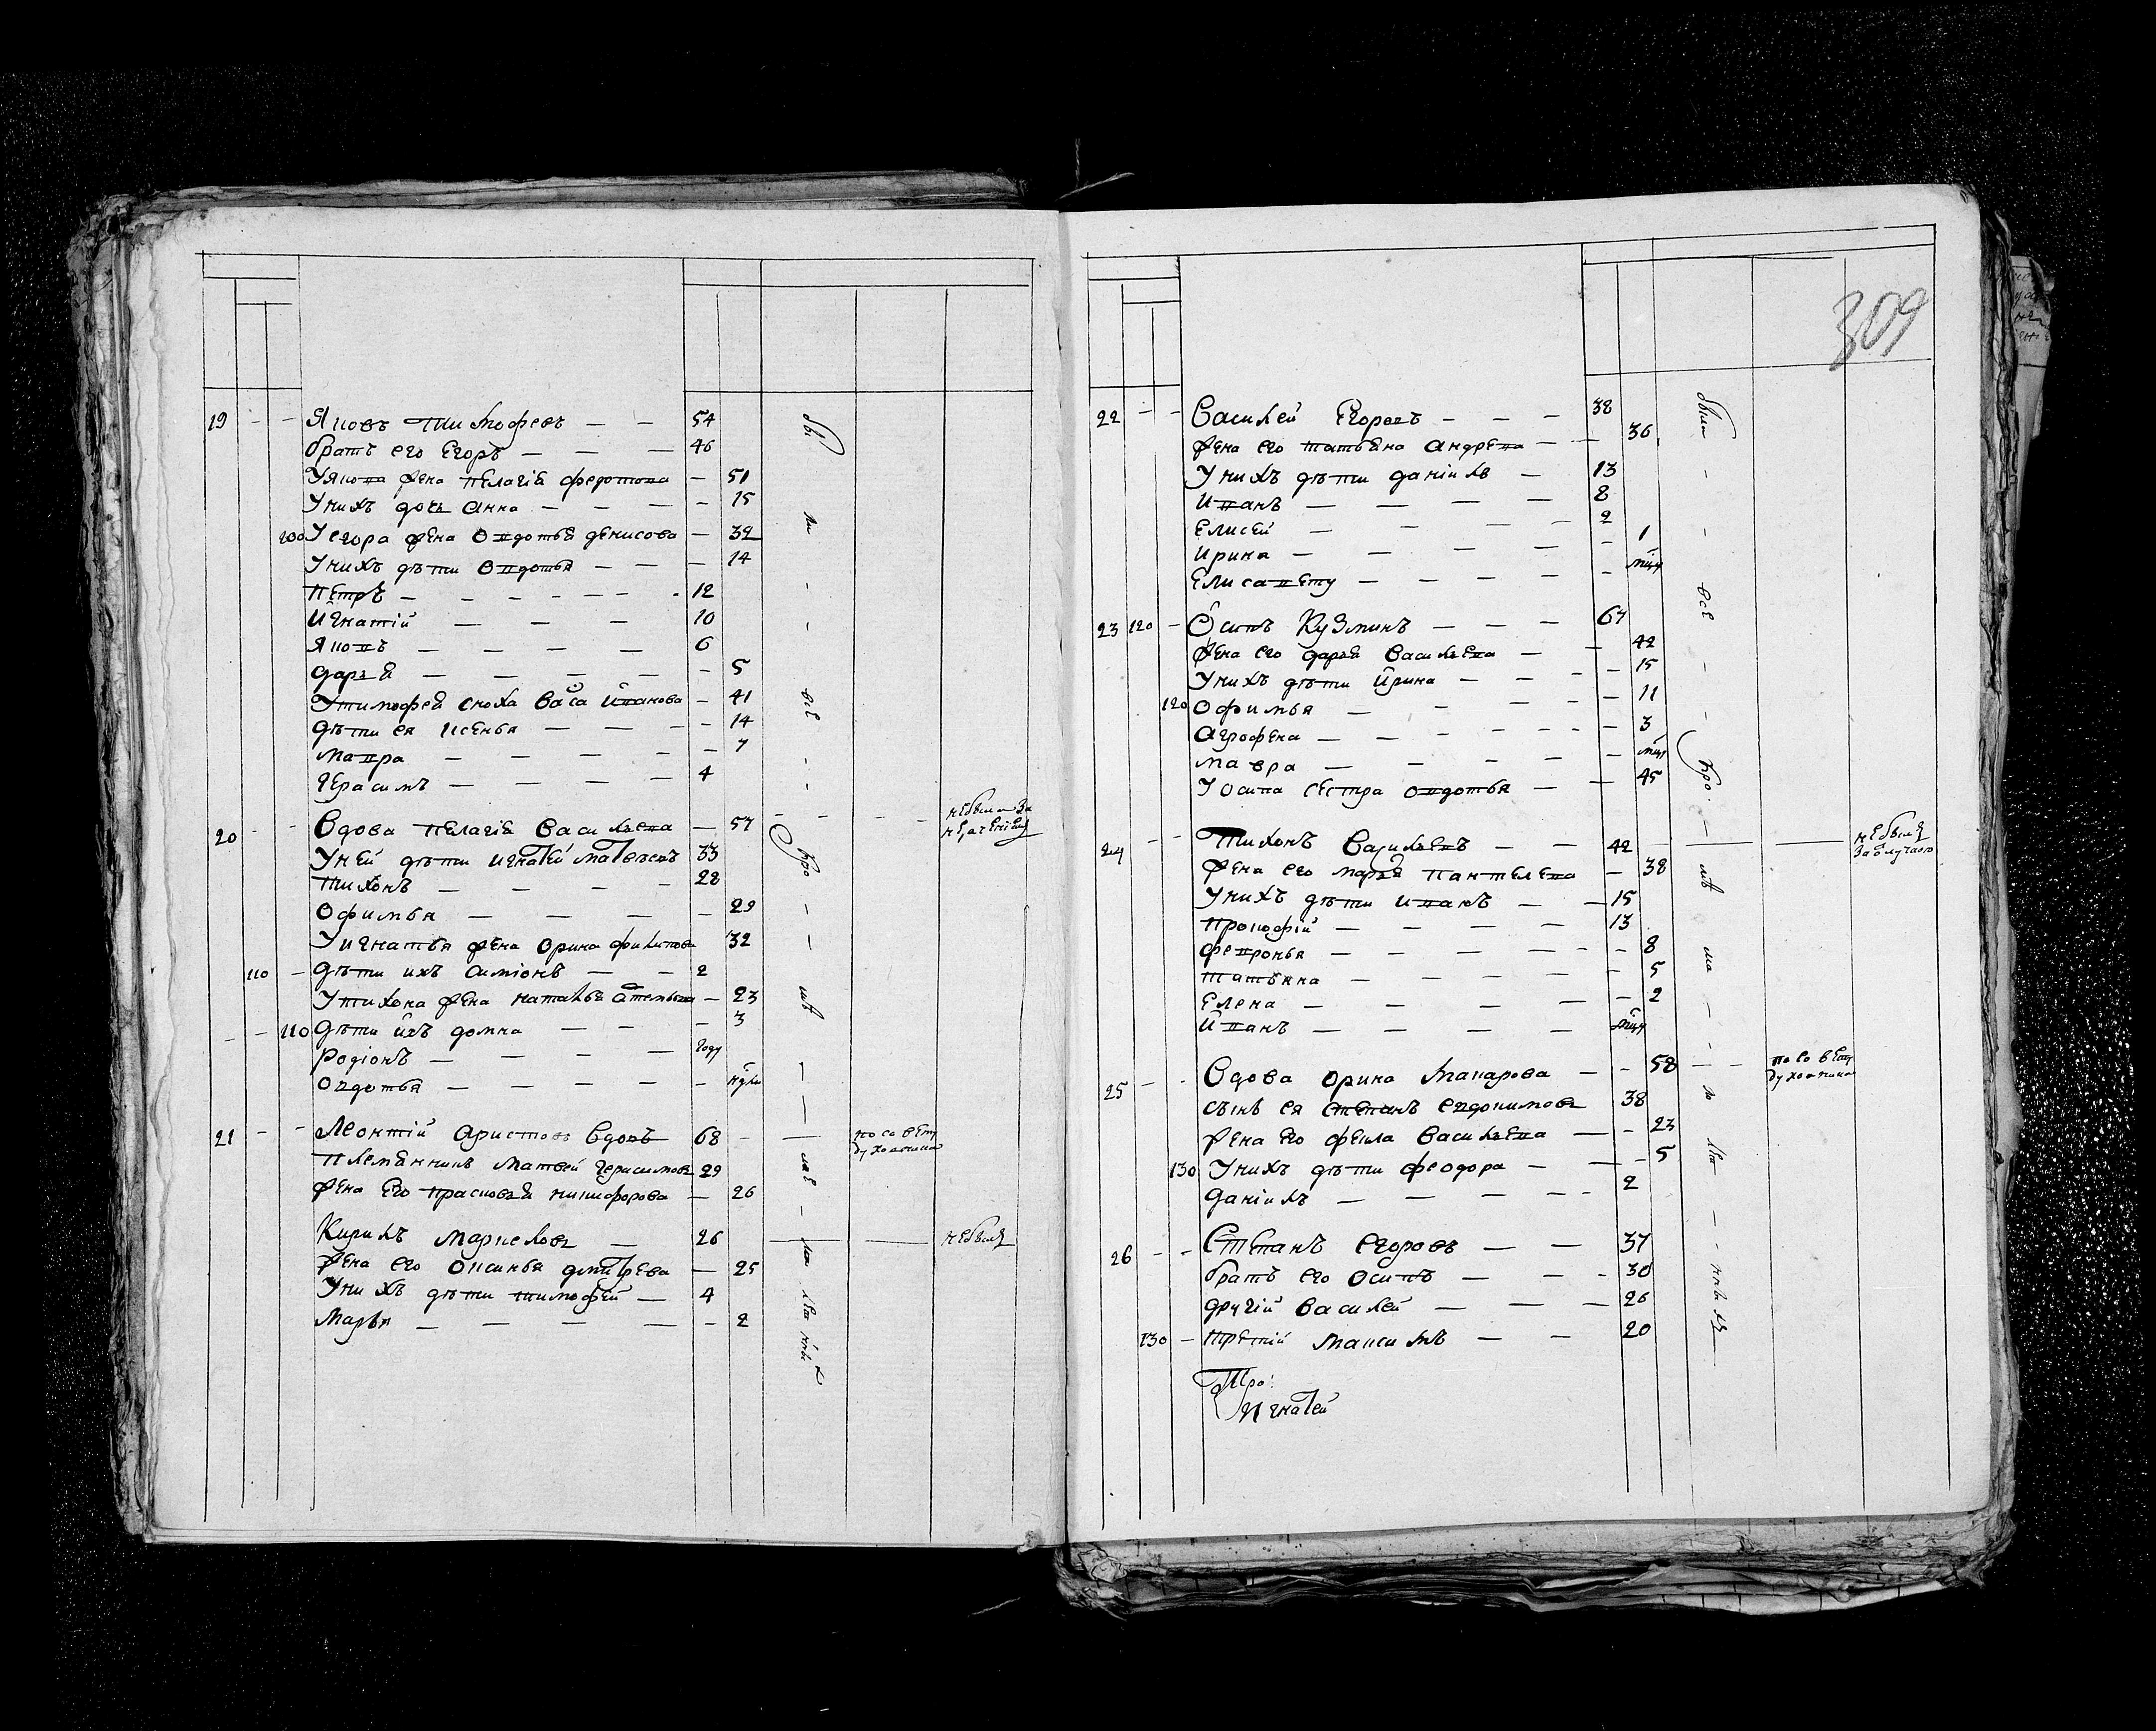 309
19 - - Яковъ Тимофеевъ - - 54
братъ его Егоръ - - - 46
У Якова жена Пелагія Федотова - 51
У нихъ дочь Анна - - - - 15
100 У Егора жена Овдотья Денисова - 32
У нихъ дѣти Овдотья - - - - 14
Петръ - - - - - - 12
Игнатій - - - 10
Яковъ - - - - 6
Дарья - - - - - 5
У Тимофея сноха Васса Иванова - 41
дѣти ея Ксенья - - - - 14
Мавра - - - - - 7
Герасимъ - - - - 4
20 - - Вдова Пелагія Васильева - 57
У ней дѣти Игнатей Матвѣевъ 33
Тихонъ - - - - 28
Офимья - - - - 29
У Игнатья жена Орина Филипова 32
110 - дѣти ихъ Симіонъ - - 2
У Тихона жена Наталья - 23
- - 110 дѣти ихъ Домна - - - 3
Родіонъ - - - - году
Овдотья - - - - - нѣли
21 - - Леонтій Аристовъ вдовъ 68 - - по совѣту духовника
Племянникъ Матвей Герасимовъ 29
жена его Прасковья Никифорова - 26
Кирилъ Маркеловъ - 26 - - не былъ
жена его Оксинья Дмитрева - 25
У нихъ дѣти Тимофей - 4
Марья - - - - - 2
22 - - Василей Егоровъ - - - 38
жена его Татьяна Андрева - - 36
У нихъ дѣти Даніилъ - 13
Иванъ - - - - 8
Елисей - - - - 2
Ирина - - - - - 1
Елисавету - - - - - мцъ
23 120 - Осипъ Кузминъ - - - 67
жена его Дарья Васильева - - 42
У нихъ дѣти Ирина - - - - 15
120 Офимья - - - - - 11
Агрофена - - - - - - 3
Мавра - - - - - мцъ
У Осипа сестра Овдотья - - 45
24 - - Тихонъ Васильевъ - - 42 - - не былъ за отлучкою
жена его Марья Пантелева - 38
У нихъ дѣти Иванъ - - 15
Прокофій - - - - 13
Февронья - - - - - - 8
Татьяна - - - - - 5
Елена - - - - - 2
Иванъ - - - - мцъ
25 - - Вдова Орина Макарова - - 58 - - по совѣту духовника
сынъ ея Степанъ Евдокимовъ 38
жена его Фекла Васильева - - 23
130 У нихъ дѣти Феодора - - - 5
Даніилъ - - - - - 2
26 - - Степанъ Егоровъ - - 37
братъ его Осипъ - - - 30
другій Василей - - - 26
130 - третій Максимъ - - 20
Игнатей